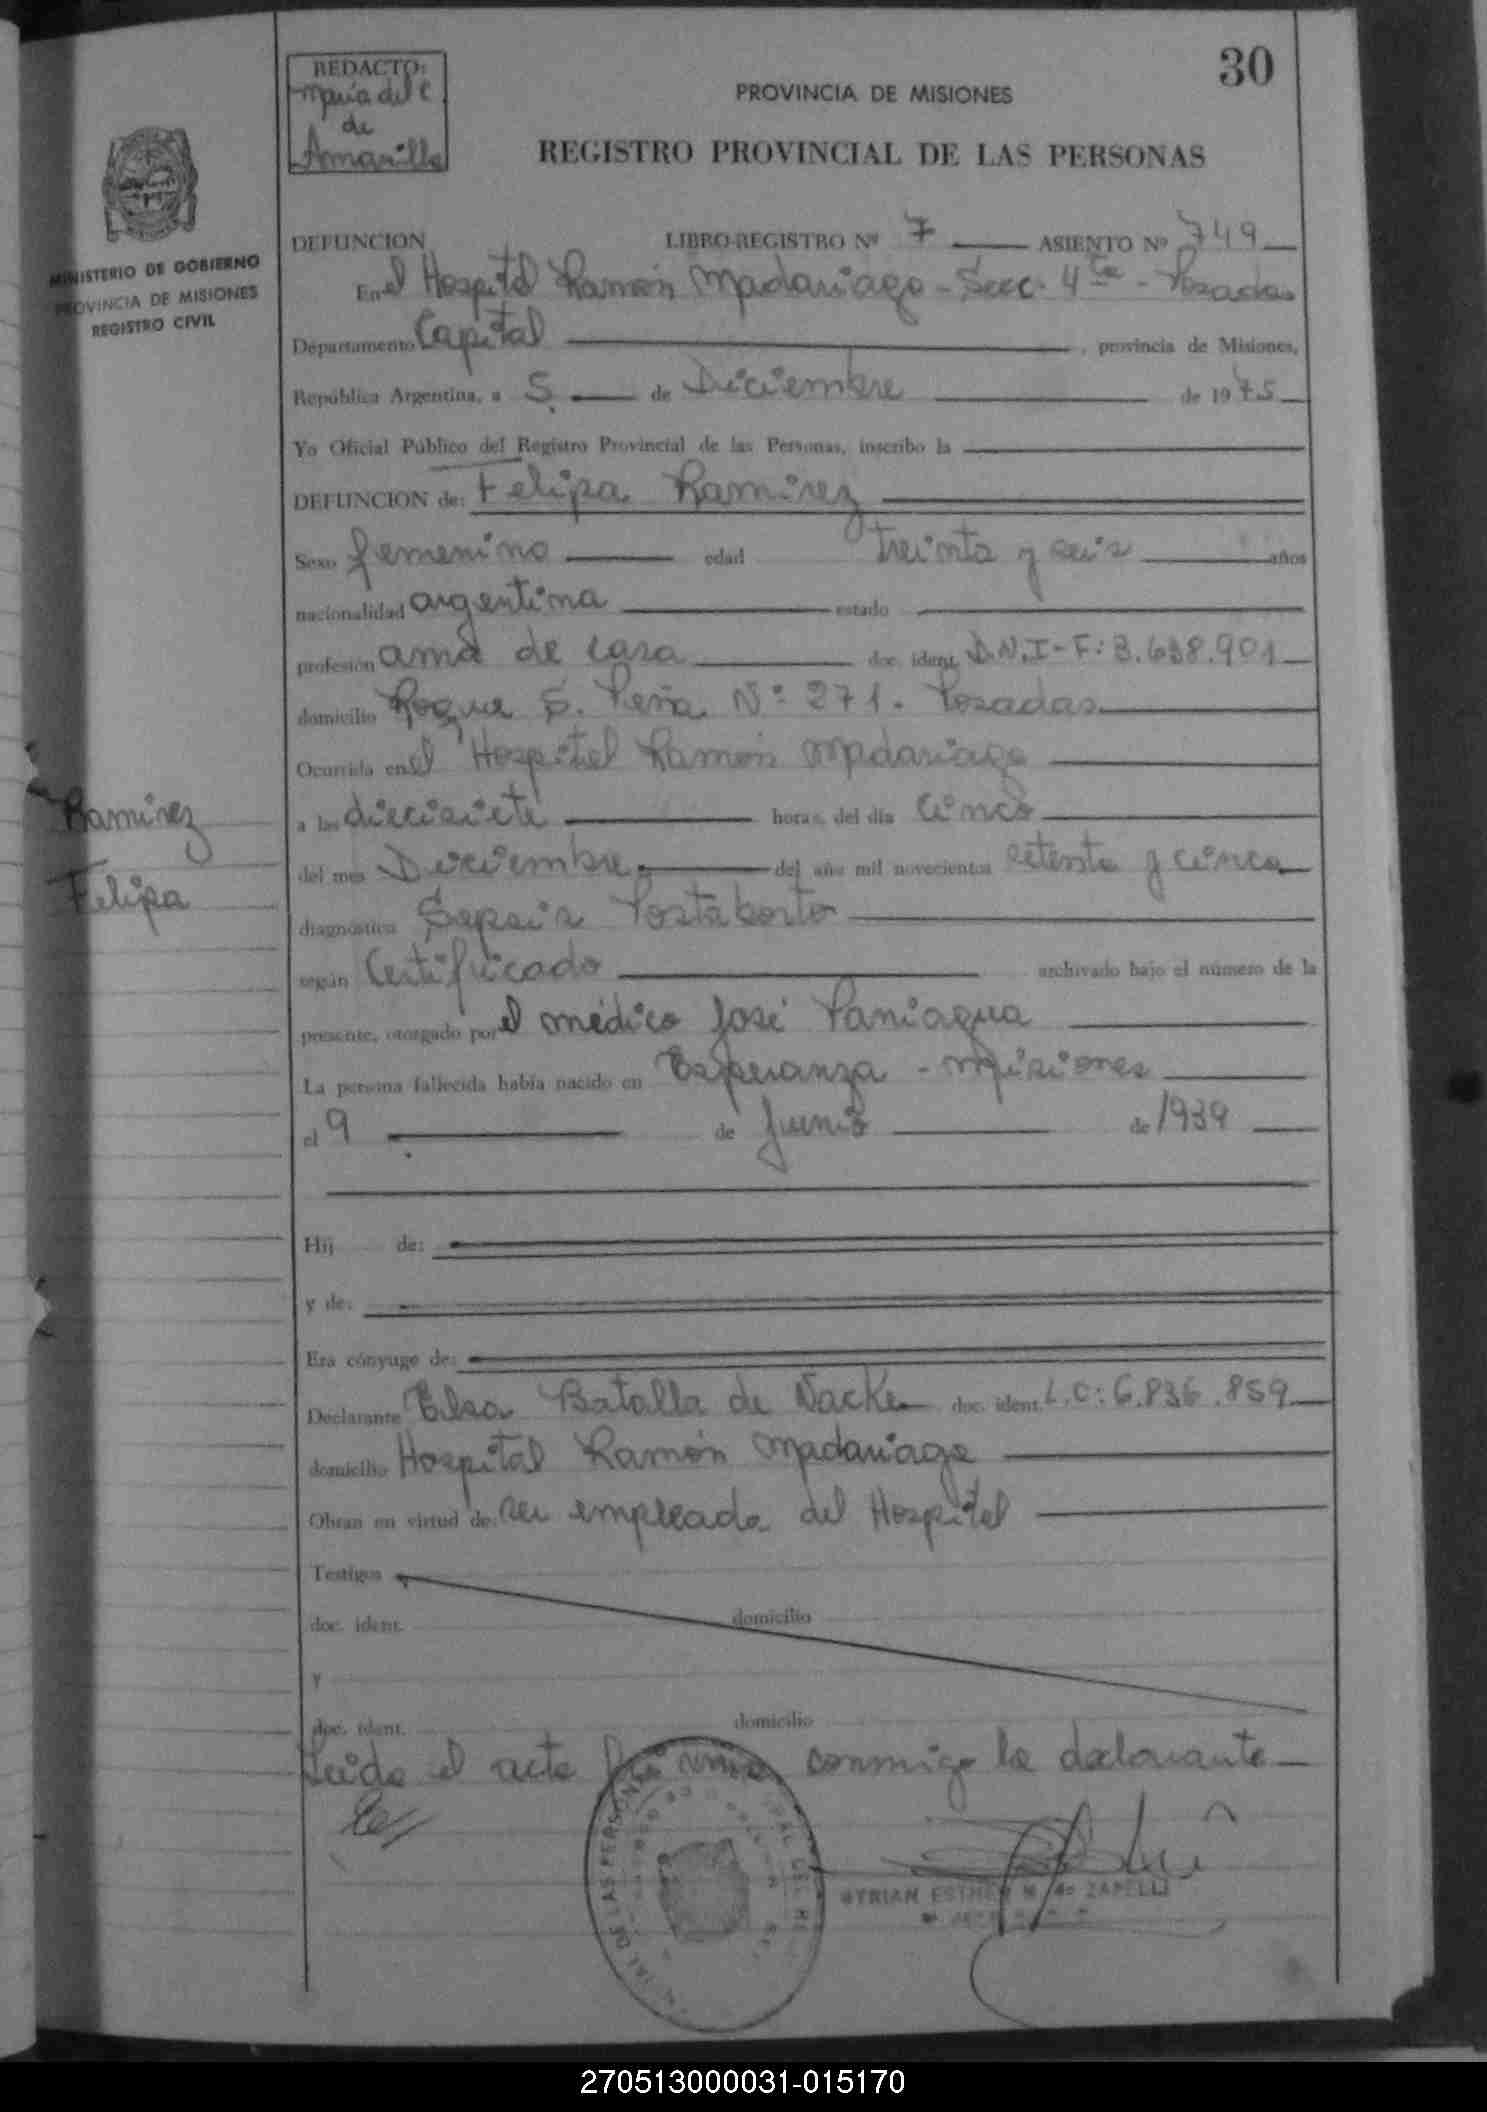 30
REDACTO:
María del C
de
Amarilla
PROVINCIA DE MISIONES
REGISTRO PROVINCIAL DE LAS PERSONAS
MINISTERIO DE GOBIERNO
PROVINCIA DE MISIONES
REGISTRO CIVIL
DEFUNCION LIBRO-REGISTRO Nº 7 ASIENTO Nº 749
En el Hospital Ramón Madariaga - Secc. 4ta - Posadas
Departamento Capital, provincia de Misiones,
República Argentina, a 5 de Diciembre de 1975
Yo Oficial Público del Registro Provincial de las Personas, inscribo la
DEFUNCION de: Felipa Ramirez
Sexo femenino edad treinta y seis años
nacionalidad argentina estado
profesión ama de casa doc. ident. D.N.I-F: 3.638.901
domicilio Roque S. Peña Nº 271. Posadas
Ocurrida en el Hospital Ramón Madariaga
a las diecisiete horas, del día Cinco
del mes Diciembre del año mil novecientos setenta y cinco
diagnóstico Sepsis Postaborto
según Certificado archivado bajo el número de la
presente, otorgado por el médico José Paniagua
La persona fallecida había nacido en Esperanza - Misiones
el 9 de Junio de 1939
Hij de:
y de:
Era cónyuge de:
Declarante Elsa Batalla de Nacke doc. ident. L.C: 6.836.859
domicilio Hospital Ramón Madariaga
Obran en virtud de: ser empleada del Hospital
Testigos
doc. ident. domicilio
y
doc. ident. domicilio
Leída el acta firma conmigo la declarante
Ramirez
Felipa
MYRIAN ESTHER M. de ZAPELLI
270513000031-015170